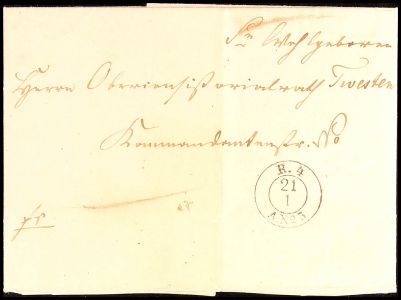 Sn Wohlgeboren
Herrn Oberconsistorialrath Twesten
Kommandantenstr. No
fr
R. 4
21
1
A No 3